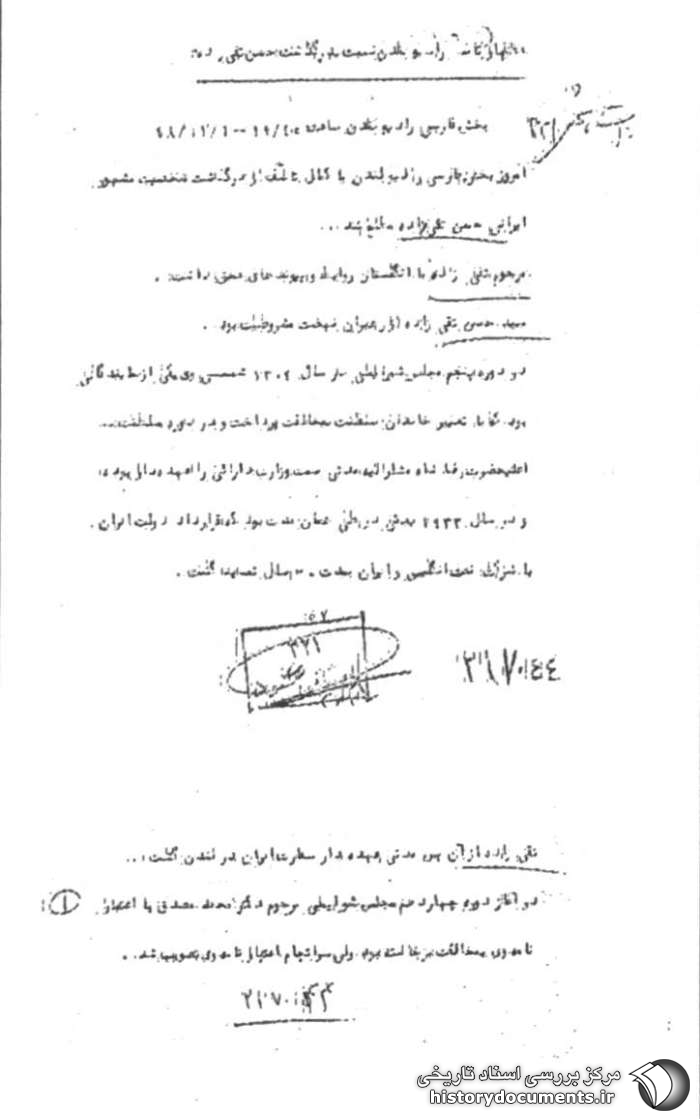 رادیو لندن نسبت بدرگذشت حسن تقی زاده
بخش فارسی رادیو لندن ساعت
امروز بخش فارسی رادیو لندن با کمال تأسف از درگذشت شخصیت مشهور
ایرانی حسن تقی‌زاده مطلع شد ...
مرحوم تقی زاده با انگلستان روابط و پیوندهای عمیق داشت .
سید حسن تقی زاده از رهبران نهضت مشروطیت بود .
در دوره پنجم مجلس شورایملی در سال ۱۳۰۴ شمسی وی یکی از نمایندگانی
بود که با تغییر خاندان سلطنت مخالفت پرداخت و در دوره سلطنت ...
اعلیحضرت رضا شاه مشارالیه مدتی سمت وزارت دارائی را عهده دار بوده
و در سال ۱۹۳۳ در طی همان مدت بود که قرارداد دولت ایران
با شرکت نفت انگلیس و ایران بمدت سال تمدید گشت .
۳۲۱
تقی زاده از آن پس مدتی عهده دار سفارت ایران در لندن گشت ...
در آغاز دوره چهاردهم مجلس شورایملی مرحوم دکتر محمد مصدق با اعتبار
نامه وی بمخالفت برخاسته بود ولی سرانجام اعتبار نامه وی تصویب شد .
مرکز بررسی اسناد تاریخی
historydocuments.ir